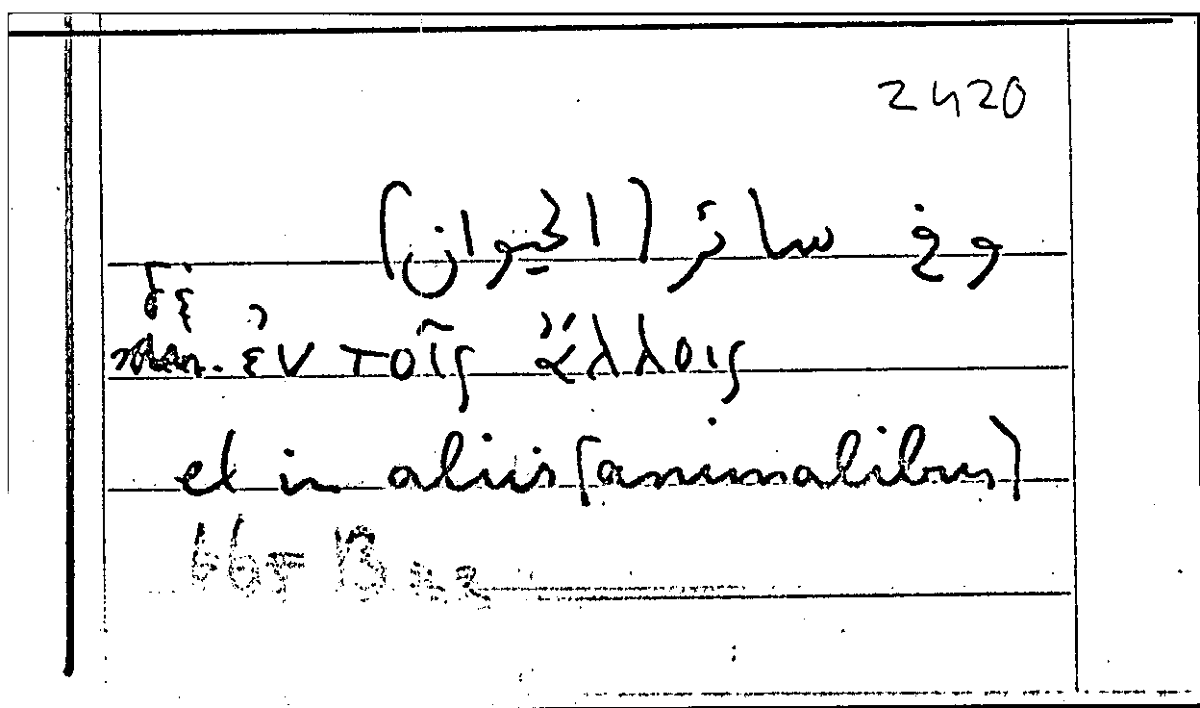 2420
وفي سائر (الحيوان)
δὲ
ἐν τοῖς ἄλλοις
et in aliis (animalibus)